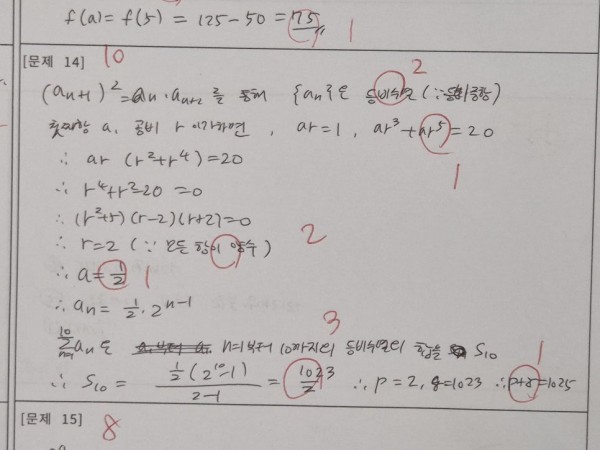 f(a) = f(5) = 125 - 50 = 75 1
[문제 14] 10
(a_{n+1})^2 = a_n · a_{n+2} 를 통해 {a_n}은 등비수열 (∵ 등비중항) 2
첫째항 a, 공비 r 이라하면, ar = 1, ar^3 + ar^5 = 20
∴ ar (r^2 + r^4) = 20 1
∴ r^4 + r^2 - 20 = 0
∴ (r^2+5)(r-2)(r+2) = 0
∴ r = 2 (∵ 모든 항이 양수) 2
∴ a = 1/2 1
∴ a_n = 1/2 · 2^{n-1}
3
\sum_{n=1}^{10} a_n 은 n=1부터 10까지의 등비수열의 합을 S_{10}
∴ S_{10} = \frac{1/2 (2^{10} - 1)}{2-1} = 1023/2 ∴ p = 2, q = 1023 ∴ p+q = 1025 1
[문제 15] 8